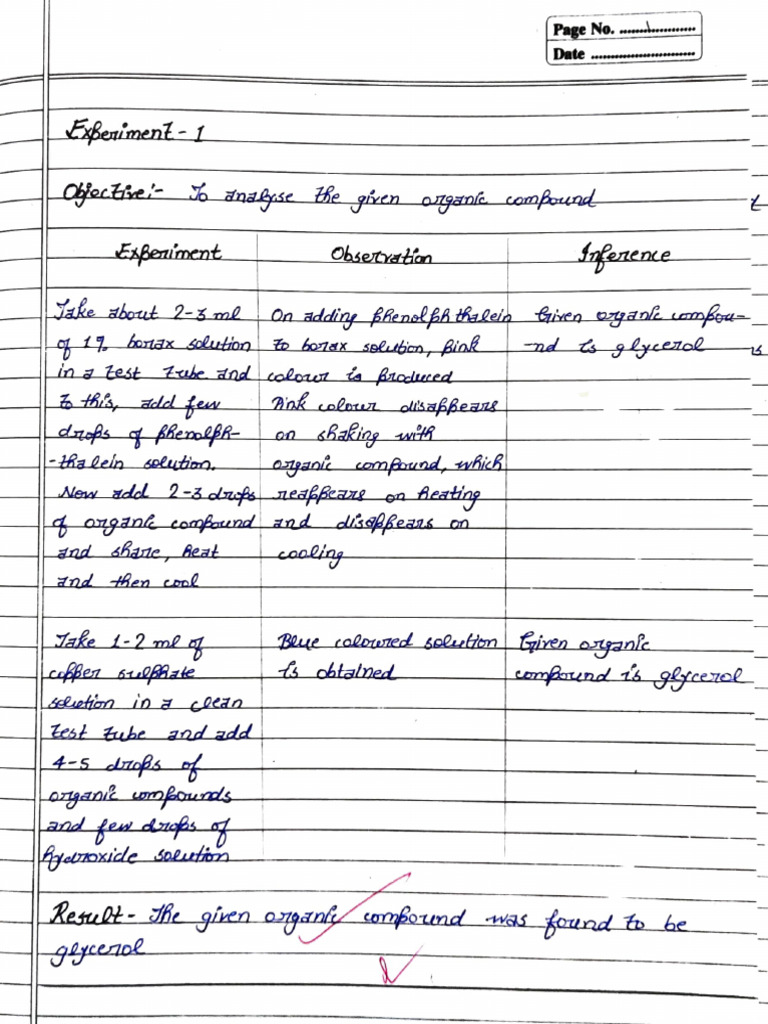 Page No. ........1................
Date ............................
Experiment - 1
Objective:- To analyse the given organic compound
Experiment
Observation
Inference
Take about 2-3 ml
of 1% borax solution
in a test tube and
to this, add few
drops of phenolph-
-thalein solution.
Now add 2-3 drops
of organic compound
and share, heat
and then cool
On adding phenolphthalein
to borax solution, pink
colour is produced
Pink colour disappears
on shaking with
organic compound, which
reappears on heating
and disappears on
cooling
Given organic compou-
-nd is glycerol
Take 1-2 ml of
copper sulphate
solution in a clean
test tube and add
4-5 drops of
organic compounds
and few drops of
hydroxide solution
Blue coloured solution
is obtained
Given organic
compound is glycerol
Result - The given organic compound was found to be
glycerol